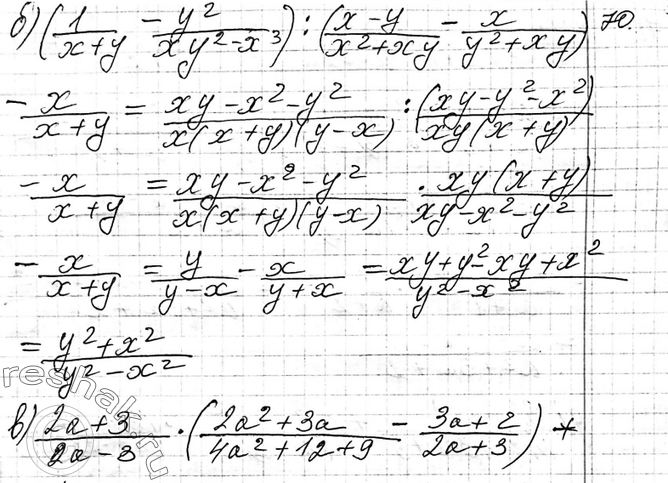 б) (1/(x+y) - y²/(xy²-x³)) : ((x-y)/(x²+xy) - x/(y²+xy)) -
- x/(x+y) = (xy-x²-y²)/(x(x+y)(y-x)) : (xy-y²-x²)/(xy(x+y)) -
- x/(x+y) = (xy-x²-y²)/(x(x+y)(y-x)) · (xy(x+y))/(xy-x²-y²) -
- x/(x+y) = y/(y-x) - x/(y+x) = (xy+y²-xy+x²)/(y²-x²) =
= (y²+x²)/(y²-x²)
в) (2a+3)/(2a-3) · ((2a²+3a)/(4a²+12+9) - (3a+2)/(2a+3)) +
reshak.ru